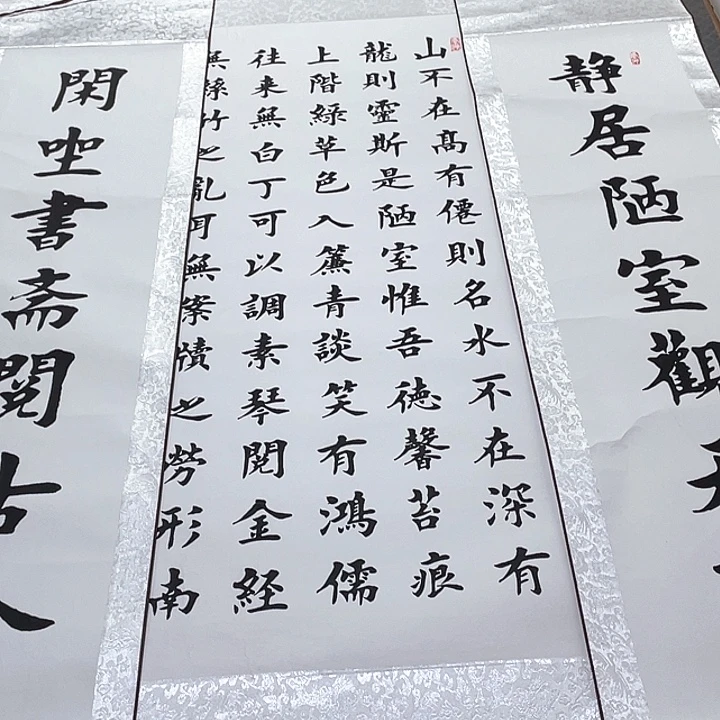 静居陋室觀
山不在髙有僊則名水不在深有
龍則靈斯是陋室惟吾徳馨苔痕
上階緑草色入簾青談笑有鴻儒
往来無白丁可以調素琴閱金経
無絲竹之亂耳無案牘之勞形南
閑坐書斋閱古人